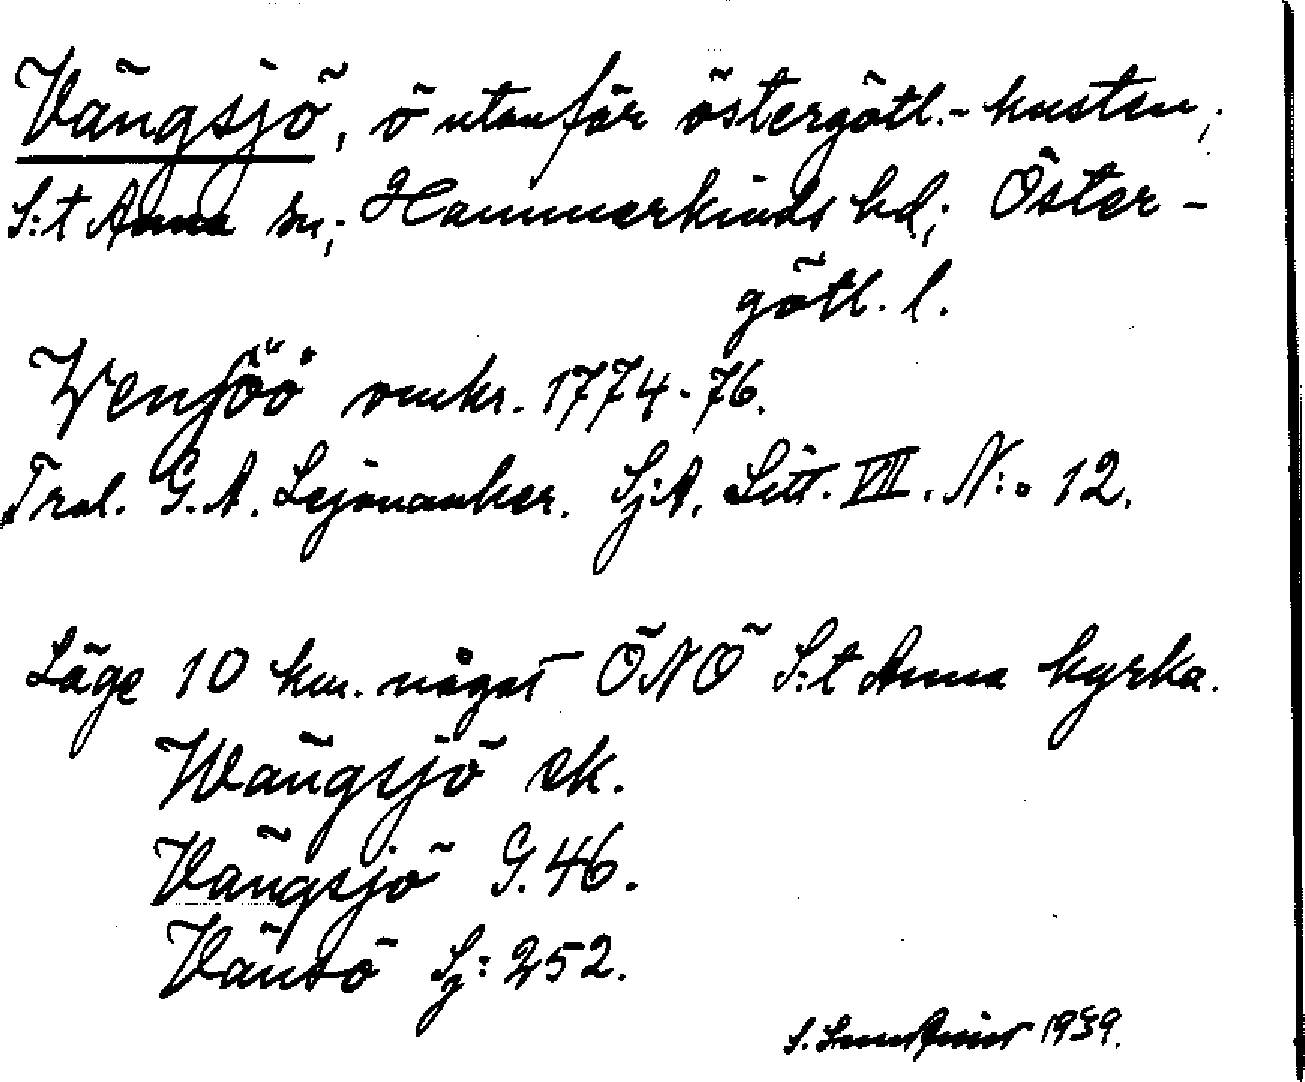 Vängsjö, ö utanför östergötl.-kusten,
S:t Anna sn, Hammarkinds hd, Öster-
götl. l.
Wensöö omkr. 1774-76.
Trol. G. A. Lejonanker. Sj:A. Litt. VII. N:o 12.
Läge 10 km. något ÖNÖ S:t Anna kyrka.
Wängsjö ek.
Vängsjö G. 46.
Vänsö Sj: 252.
S. 1939.